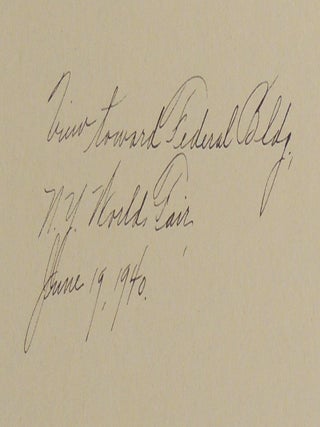 View toward Federal Bldg.,
N.Y. Worlds Fair,
June 19, 1940.